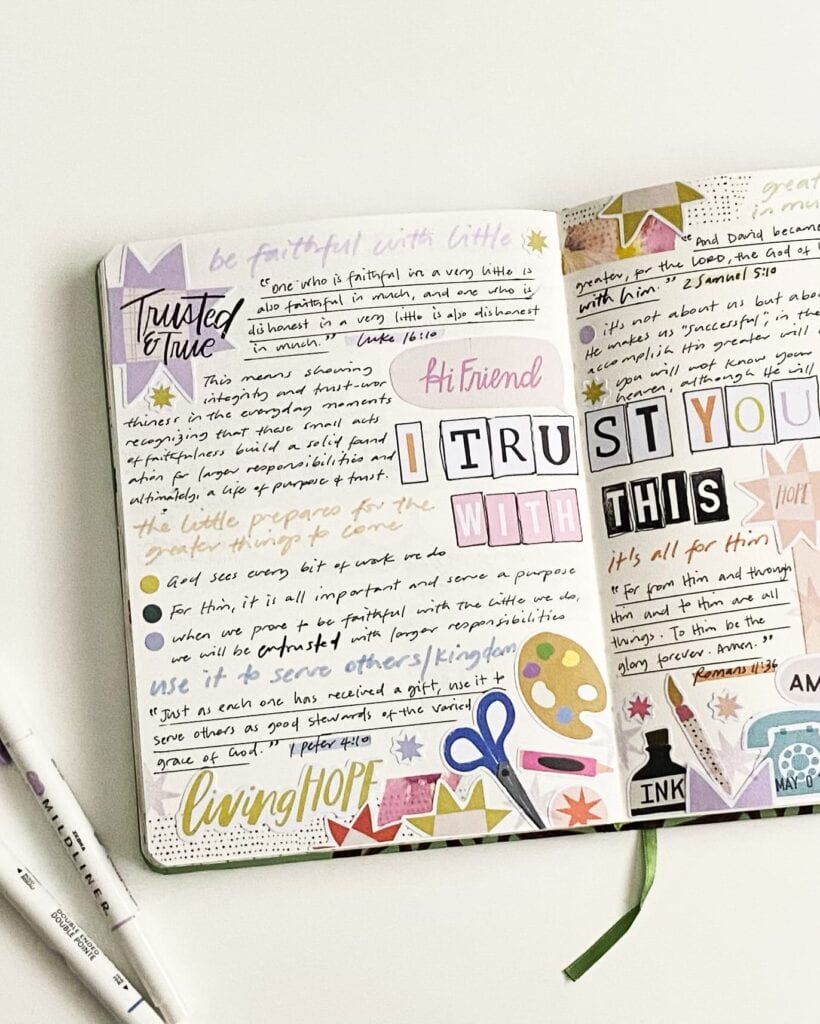 be faithful with little
Trusted
& True
"One who is faithful in a very little is
also faithful in much, and one who is
dishonest in a very little is also dishonest
in much." Luke 16:10
Hi Friend
This means showing
integrity and trust-wor
thiness in the everyday moments
recognizing that these small acts
of faithfulness build a solid found
ation for larger responsibilities and
ultimately, a life of purpose & trust.
I TRUST YOU
WITH THIS
the little prepares for the
greater things to come
God sees every bit of work we do
For Him, it is all important and serve a purpose
when we prove to be faithful with the little we do,
we will be entrusted with larger responsibilities
use it to serve others/kingdom
"Just as each one has received a gift, use it to
serve others as good stewards of the varied
grace of God." 1 Peter 4:10
living HOPE
great
in mu
"And David became
greater, for the LORD, the God of
with him." 2 Samuel 5:10
it's not about us but abo
He makes us "successful", in the
accomplish His greater will
you will not know your
heaven, although He will
HOPE
it's all for Him
"For from Him and through
Him and to Him are all
things. To Him be the
glory forever. Amen."
Romans 11:36
AM
INK
MAY 0
ZEBRA
MILDLINER
DOUBLE ENDED
DOUBLE POINTE